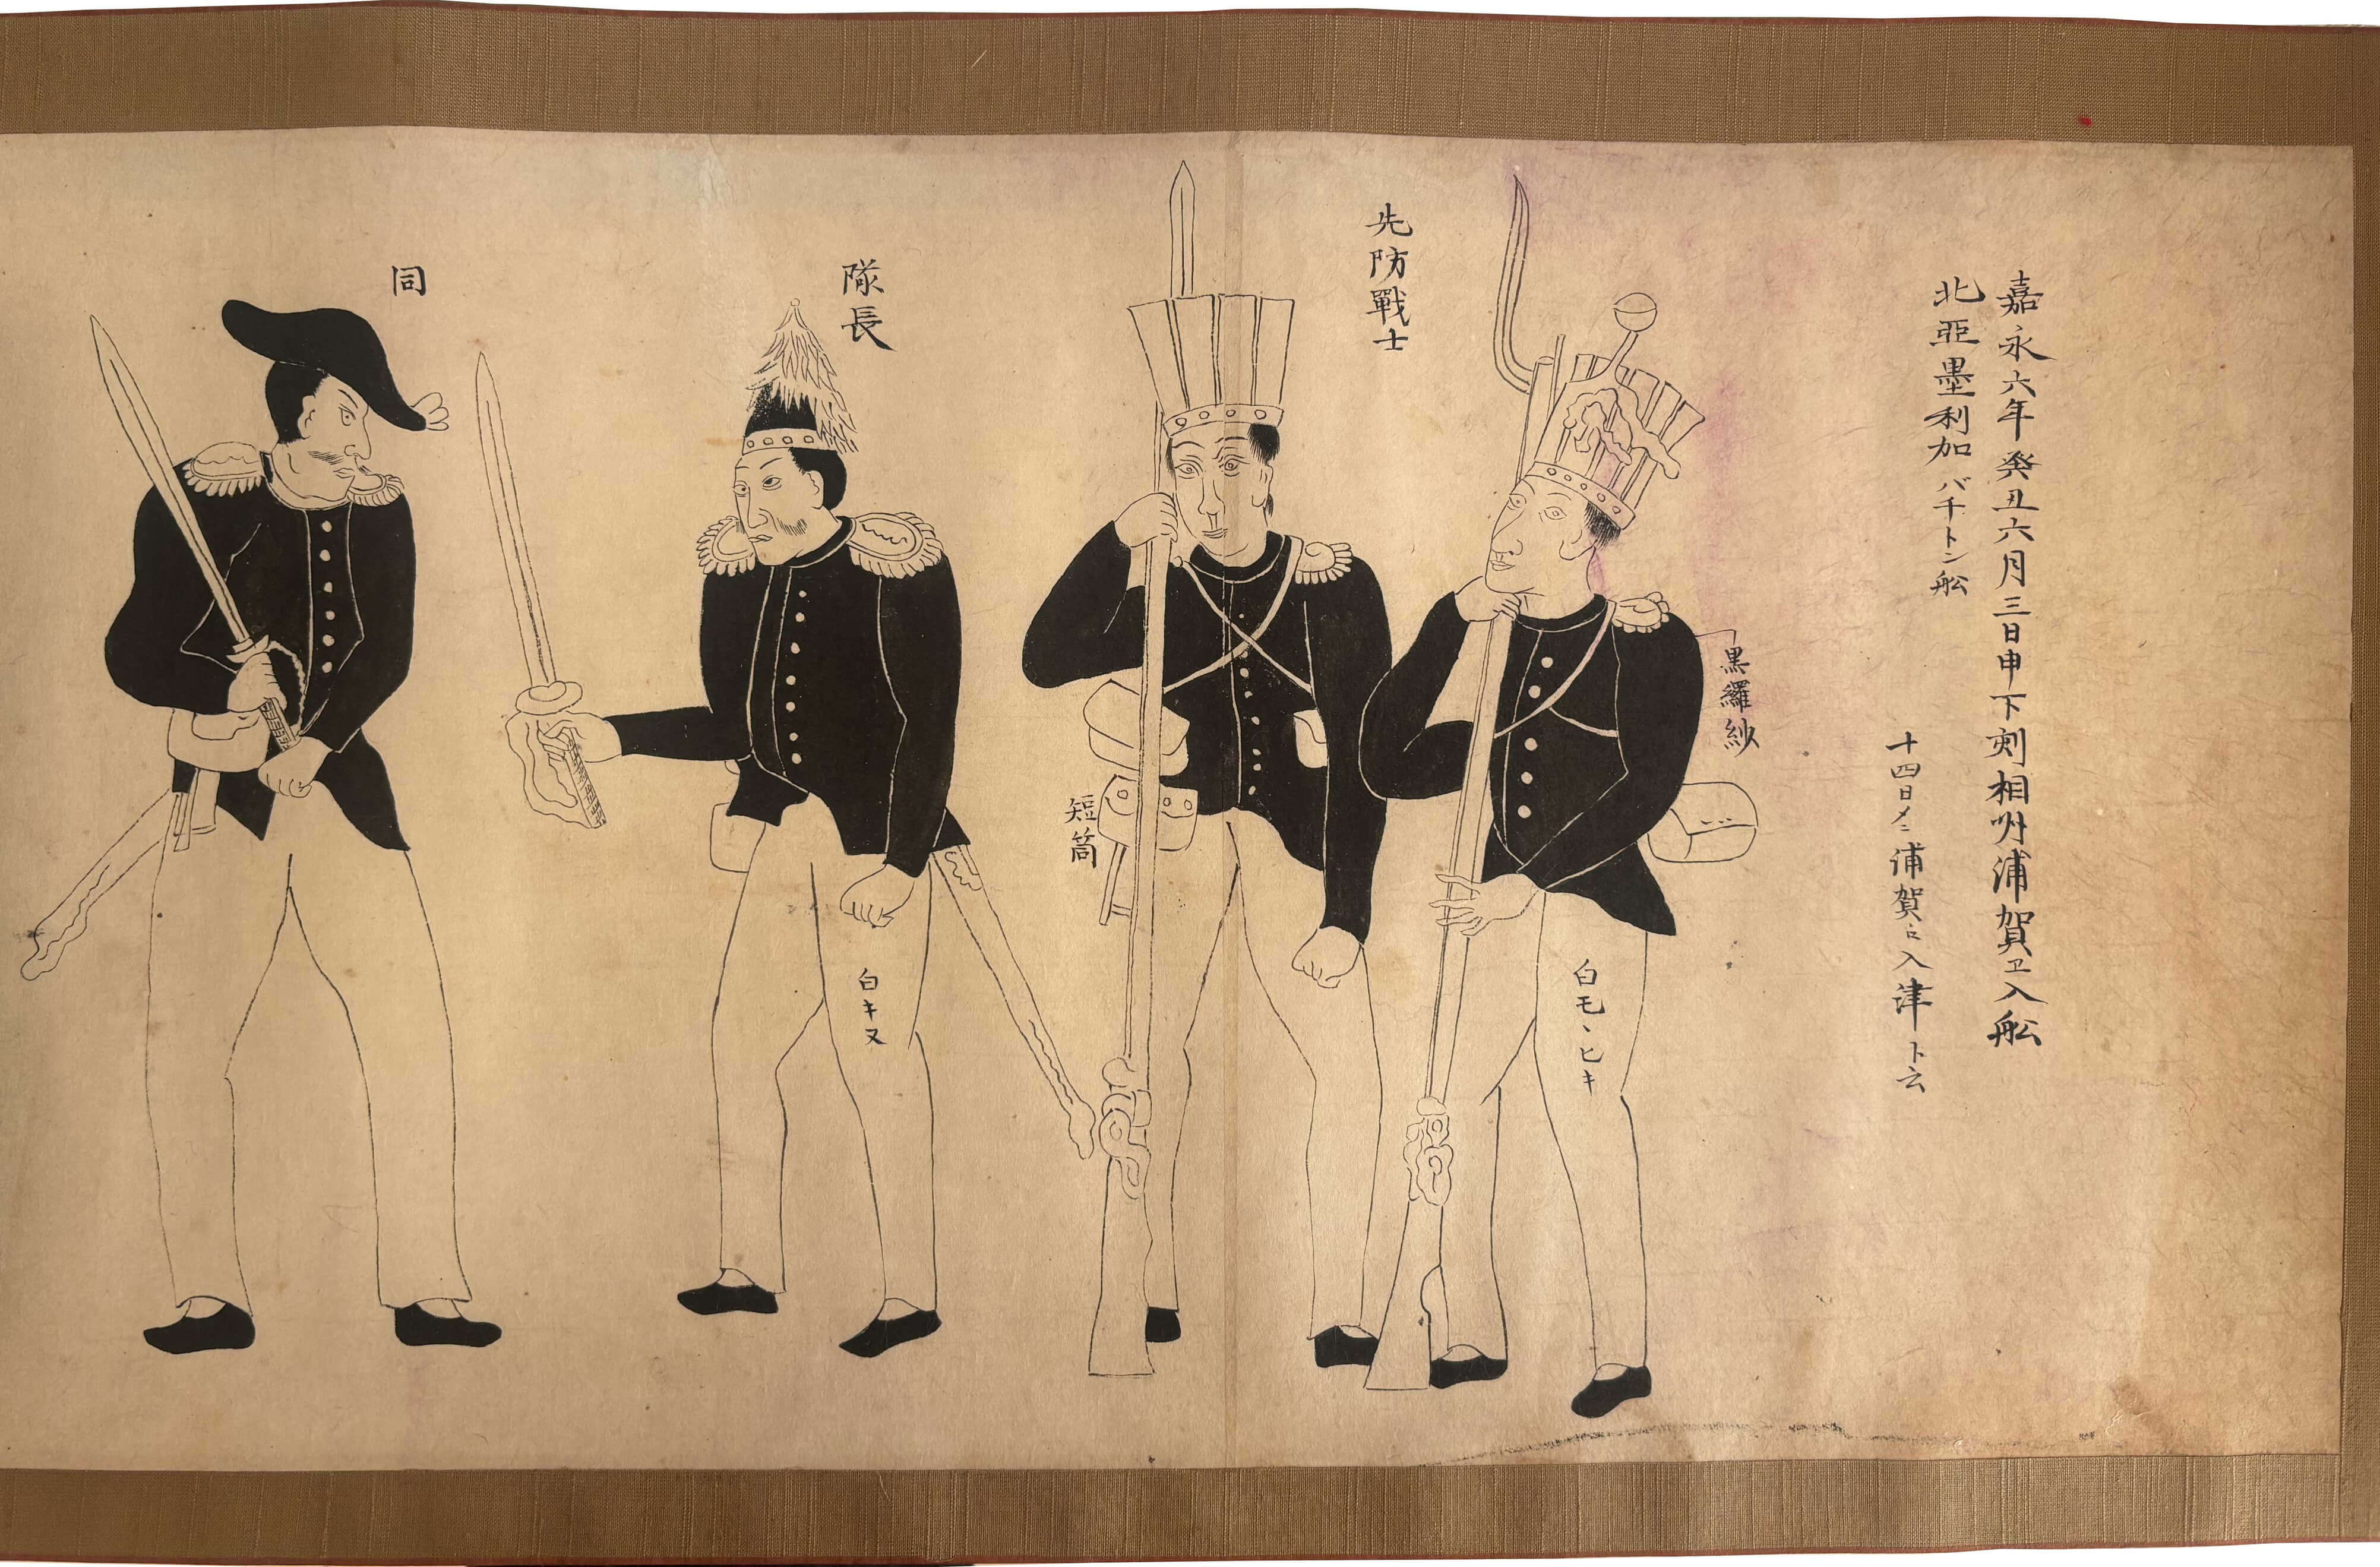 嘉永六年癸丑六月三日申下刻相州浦賀ヱ入舩
北亜墨利加バチトン舩
十四日〆ニ浦賀ニ入津ト云
黒羅紗
白モヽヒキ
先防戰士
短筒
隊長
白キヌ
同